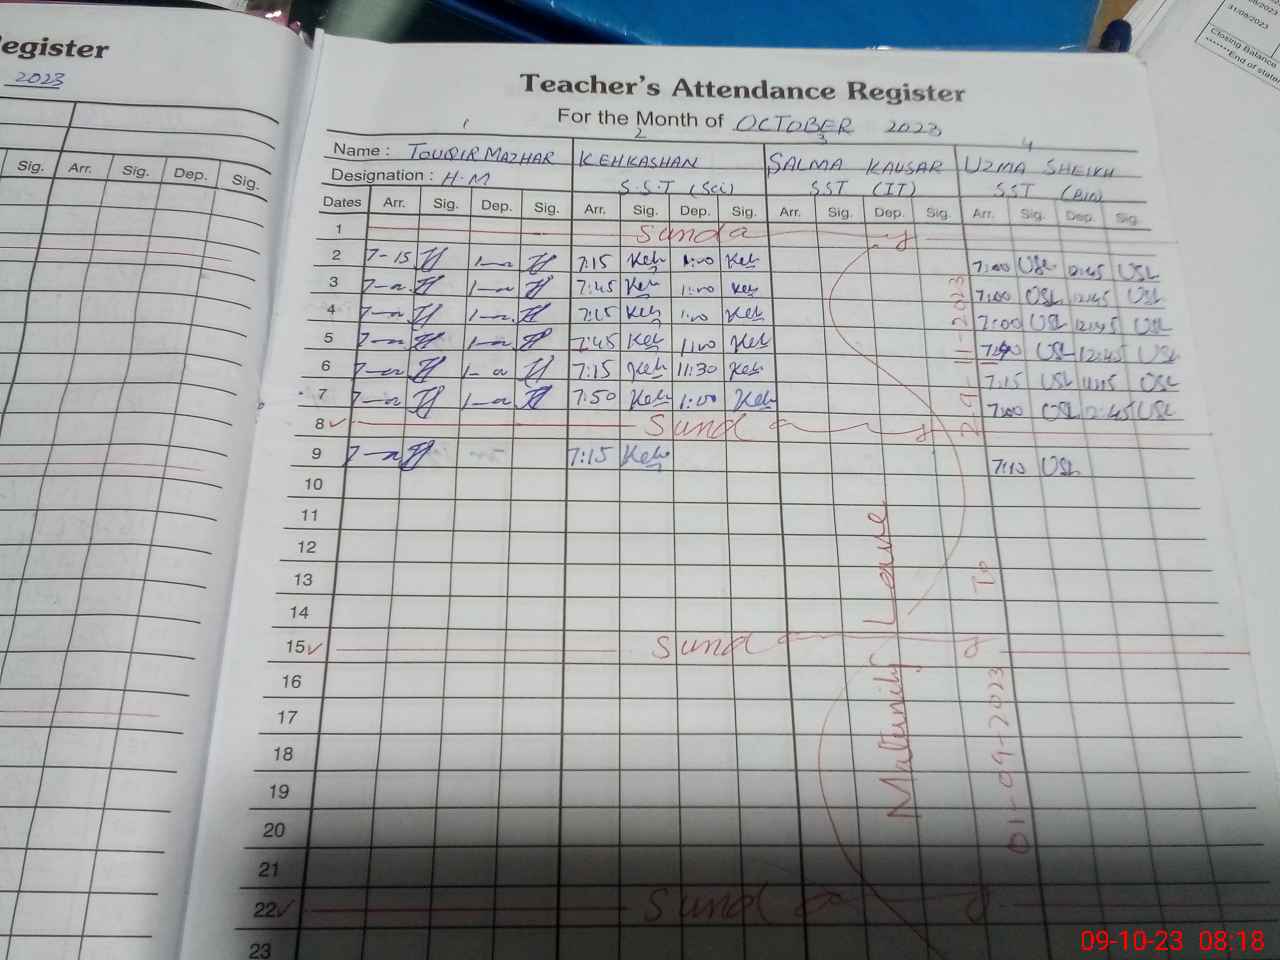 egister
2023
Sig. Arr. Sig. Dep. Sig.
31/08/2023
Closing Balance
*******End of state
Teacher's Attendance Register
For the Month of OCTOBER 2023
1 2 3 4
Name : TOUQIR MAZHAR KEHKASHAN SALMA KAUSAR UZMA SHEIKH
Designation : H.M S.S.T (Sci) SST (IT) SST (BIO)
Dates Arr. Sig. Dep. Sig. Arr. Sig. Dep. Sig. Arr. Sig. Dep. Sig. Arr. Sig. Dep. Sig.
1 Sunday
2 7-15 7:15 Keh 1:00 Keh 7:00 USL 12:45 USL
3 7:45 Keh 1:00 Keh 7:00 USL 12:45 USL
4 7:15 Keh 1:00 Keh 7:00 USL 12:45 USL
5 7:45 Keh 1:00 Keh USL 12:45 USL
6 7:15 Keh 11:30 Keh 7:15 USL USL
7 7:50 Keh 1:00 Keh 7:00 USL 12:45 USL
8 Sunday
9 7:15 Keh 7:10 USL
10
11
12
13
14
15 Sunday
16
17
18
19
20
21
22 Sunday
23
Maternity Leave
01-09-2023 To 29-11-2023
09-10-23 08:18